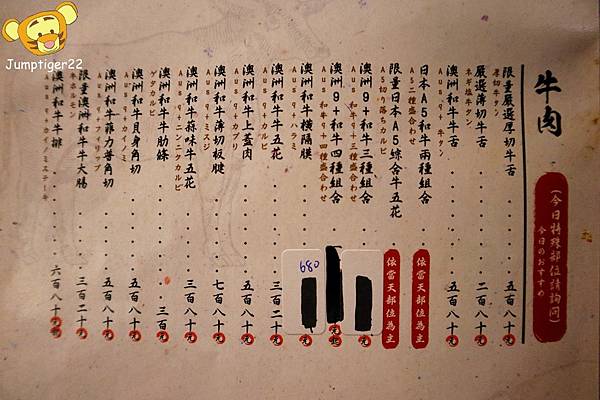 牛肉
(今日特殊部位請詢問)
今日のおすすめ
限量嚴選厚切牛舌 五百八十元
厚切牛タン
嚴選薄切牛舌 二百八十元
ネギ塩牛タン
澳洲和牛牛舌 五百八十元
Aus 9+ 牛タン
日本A5和牛兩種組合 依當天部位為主
A5二種盛合わせ
限量日本A5綜合牛五花 依當天部位為主
A5切り落ちカルビ
澳洲9+和牛三種組合
Aus 和牛9+三種盛合わせ
澳洲9+和牛四種組合 元
Aus 和牛9+四種盛合わせ
澳洲和牛橫隔膜 680 元
Aus 9+ハラミ
澳洲和牛牛五花 三百二十元
Aus 9+カルビ
澳洲和牛上蓋肉 五百八十元
Aus 9+カブリ
澳洲和牛薄切板腱 七百八十元
Aus 9+ミスジ
澳洲和牛蒜味牛五花 三百八十元
Aus 9+ニンニクカルビ
澳洲和牛牛肋條 三百元
ゲタカルビ
澳洲和牛貝身角切 五百八十元
Aus 9+カイノミ
澳洲和牛菲力普角切 五百八十元
限量澳洲和牛牛大腸 三百二十元
牛ホルモン
澳洲和牛牛排 六百八十元
Aus 9+カイノミステーキ
Jumptiger22